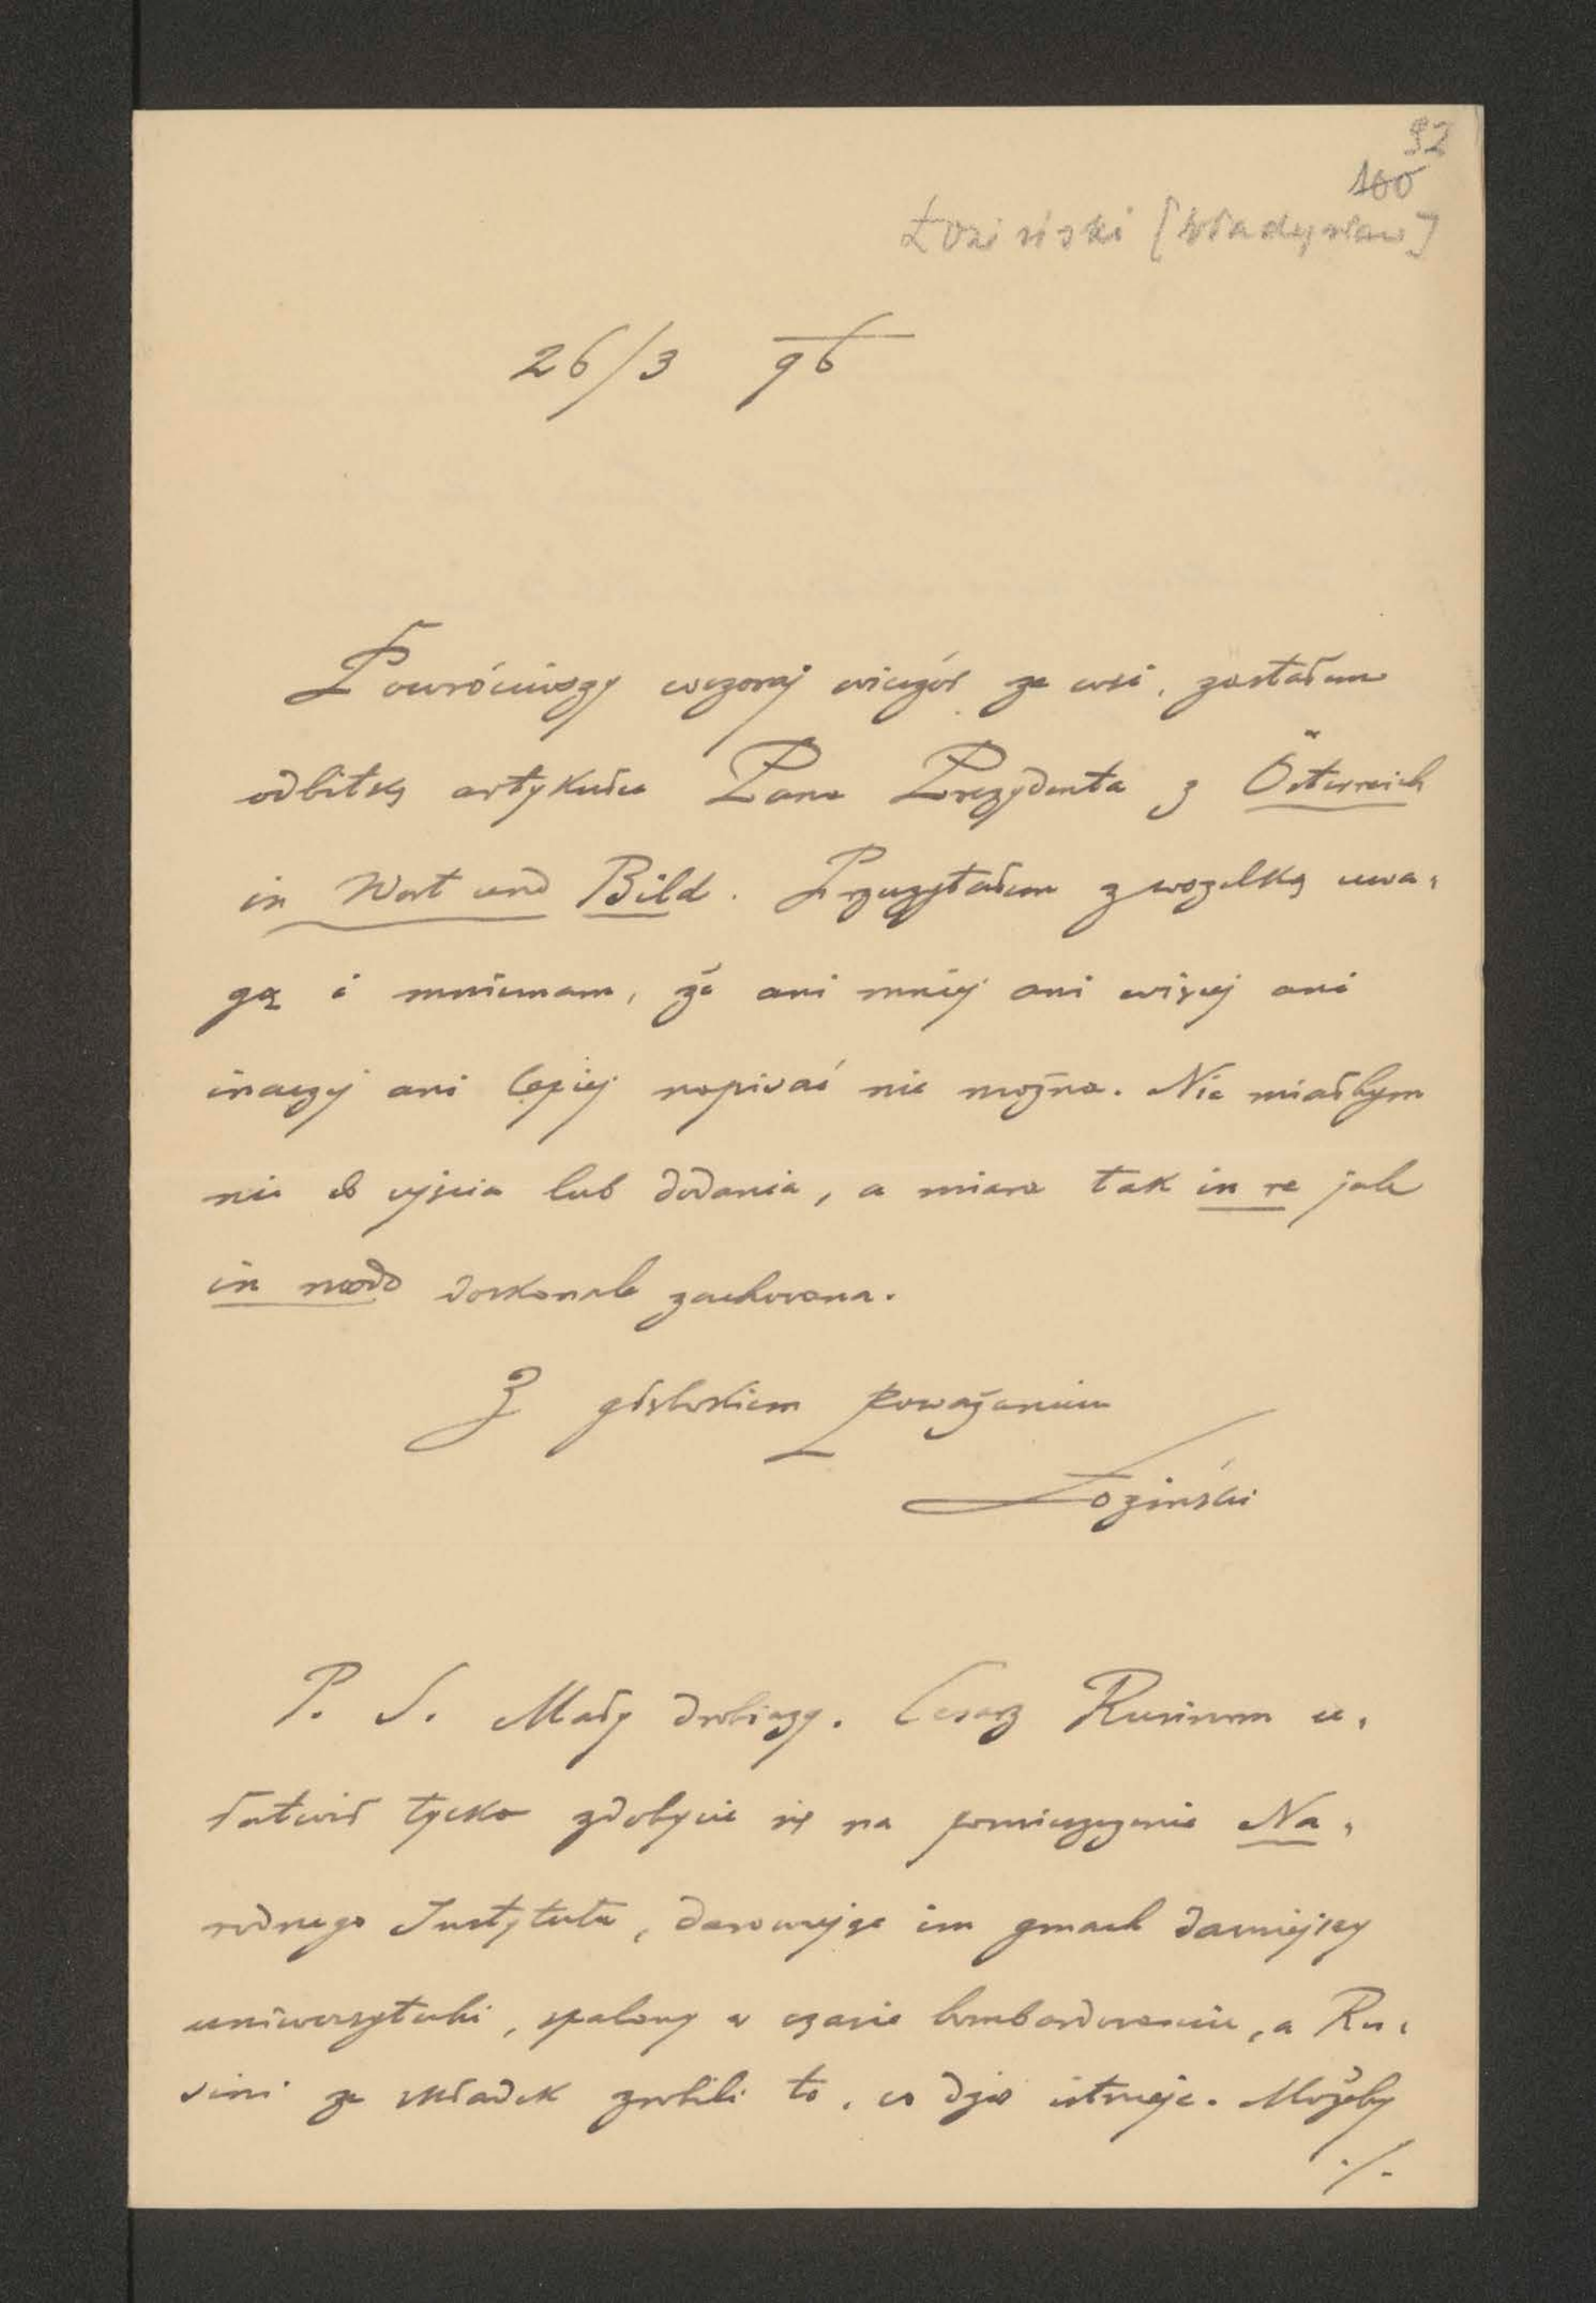 92
100
Łoziński [Władysław]
26/3 96
Powróciwszy wczoraj wieczór ze wsi, zastałem
odbitkę artykułu Pana Prezydenta z Österreich
in Wort und Bild. Przeczytałem z wszelką uwa-
gą i mniemam, że ani mniej ani więcej ani
inaczej ani lepiej napisać nie można. Nie miałbym
nic do ujęcia lub dodania, a miara tak in re jak
in modo doskonale zachowana.
Z głębokiem poważaniem
Łoziński
P. S. Mały drobiazg. Cesarz Rusinom u-
łatwił tylko zdobycie się na pomieszczenie Na-
rodnego Instytutu, darowując im gmach dawniejszy
uniwersytecki, spalony w czasie bombardowania, a Ru-
sini ze składek zrobili to, co dziś istnieje. Możeby
./.